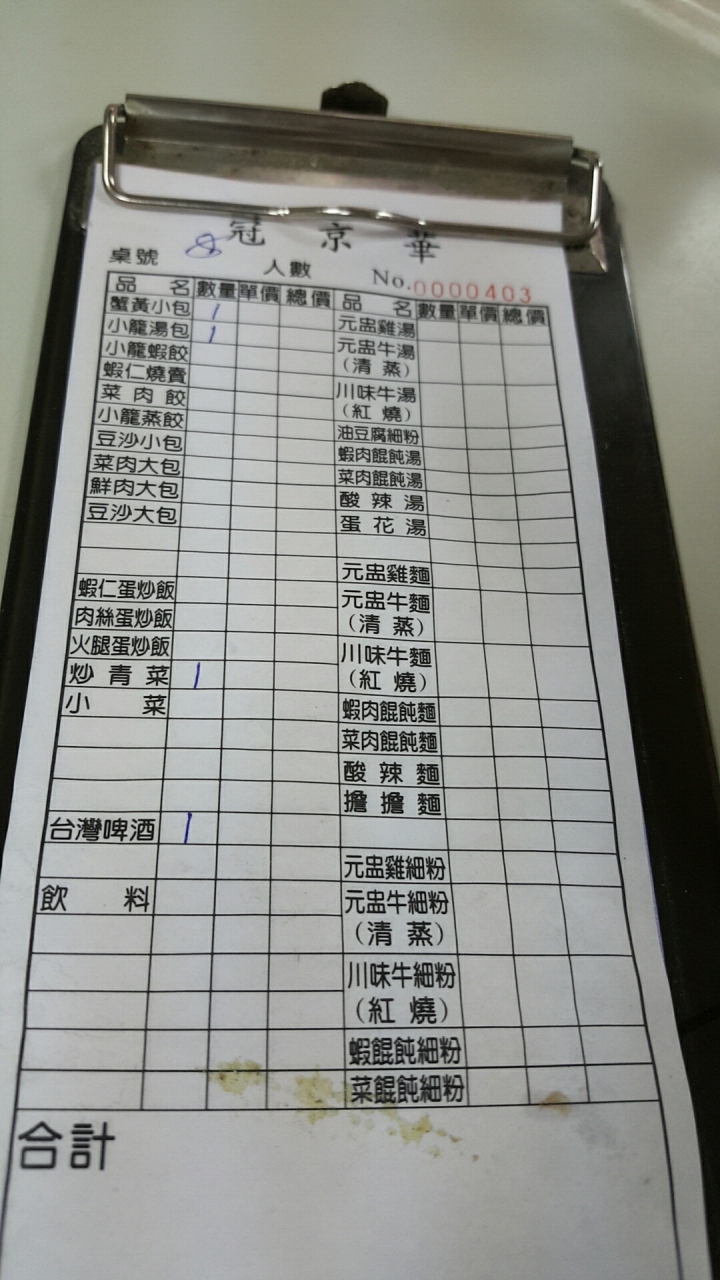 冠京華
桌號 8 人數 No.0000403
品名 數量 單價 總價 品名 數量 單價 總價
蟹黃小包 1
小籠湯包 1
小籠蝦餃
蝦仁燒賣
菜肉餃
小籠蒸餃
豆沙小包
菜肉大包
鮮肉大包
豆沙大包
蝦仁蛋炒飯
肉絲蛋炒飯
火腿蛋炒飯
炒青菜 1
小菜
台灣啤酒 1
飲料
元盅雞湯
元盅牛湯
(清蒸)
川味牛湯
(紅燒)
油豆腐細粉
蝦肉餛飩湯
菜肉餛飩湯
酸辣湯
蛋花湯
元盅雞麵
元盅牛麵
(清蒸)
川味牛麵
(紅燒)
蝦肉餛飩麵
菜肉餛飩麵
酸辣麵
擔擔麵
元盅雞細粉
元盅牛細粉
(清蒸)
川味牛細粉
(紅燒)
蝦餛飩細粉
菜餛飩細粉
合計